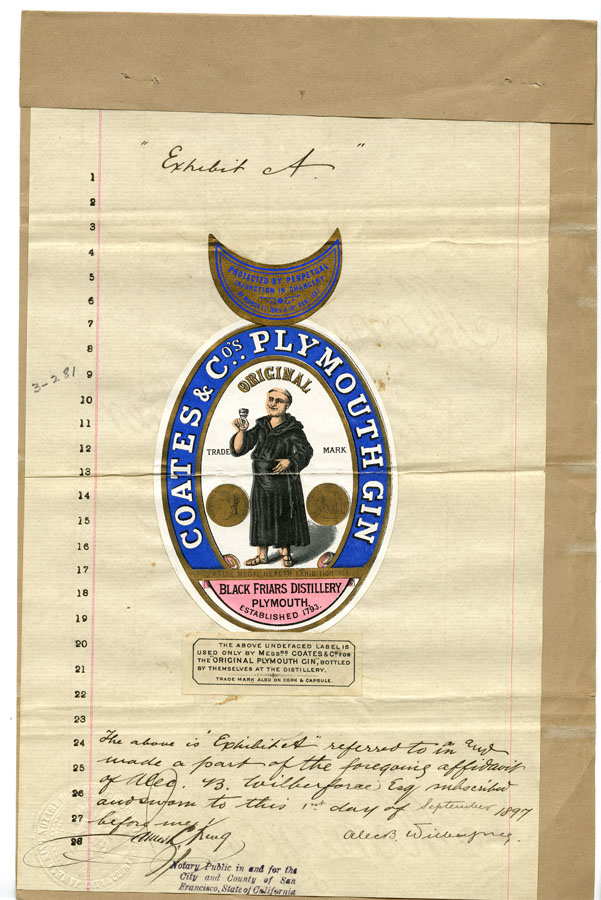 "Exhibit A."
1
2
3
4
5
6
7
8
9
10
11
12
13
14
15
16
17
18
19
20
21
22
23
24
25
26
27
28
3-281
PROTECTED BY PERPETUAL
INJUNCTION IN CHANCERY
COATES & Co's. PLYMOUTH GIN
ORIGINAL
TRADE MARK
PRIZE MEDAL HEALTH EXHIBITION
BLACK FRIARS DISTILLERY
PLYMOUTH.
ESTABLISHED 1793.
THE ABOVE UNDEFACED LABEL IS
USED ONLY BY MESSRS COATES & Co FOR
THE "ORIGINAL PLYMOUTH GIN", BOTTLED
BY THEMSELVES AT THE DISTILLERY.
TRADE MARK ALSO ON CORK & CAPSULE.
The above is "Exhibit A" referred to in and
made a part of the foregoing affidavit
of Alec. B. Wilberforce Esq subscribed
and sworn to this 1st day of September 1897
before me:
Alec B. Wilberforce
Notary Public in and for the
City and County of San
Francisco, State of California